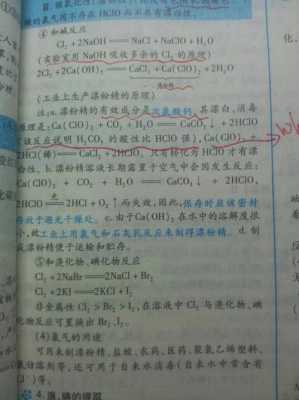 ④和碱反应
Cl₂+2NaOH══NaCl+NaClO+H₂O
(实验室用NaOH吸收多余的Cl₂的原理)
2Cl₂+2Ca(OH)₂══CaCl₂+Ca(ClO)₂+2H₂O
(工业上生产漂粉精的原理)
注:a.漂粉精的有效成分是次氯酸钙,其漂白、消毒
原理是:Ca(ClO)₂+CO₂+H₂O══CaCO₃↓+2HClO
反应说明H₂CO₃的酸性比HClO强),Ca(ClO)₂+
2HCl(稀)══CaCl₂+2HClO,只有转化为HClO才有漂
白性。b.漂粉精该长期露置于空气中会因发生反应:
Ca(ClO)₂+CO₂+H₂O══CaCO₃↓+2HClO
2HClO══2HCl+O₂↑而失效,因此,保存时应该密封
存放于避光干燥处。c.由于Ca(OH)₂在水中的溶解度很
小,故工业上用氯气和石灰乳反应来制得漂粉精。d.制
成漂粉精便于运输和贮存。
⑤和溴化物、碘化物反应
Cl₂+2NaBr══2NaCl+Br₂
Cl₂+2KI══2KCl+I₂
非金属性Cl₂>Br₂>I₂,在溶液中Cl₂与溴化物、碘
化物反应可置换出Br₂、I₂。
(4)氯气的用途
可用来制漂粉精、盐酸、农药、医药、聚氯乙烯塑料、
氯仿溶剂等,还可用于自来水消毒(自来水中常含有
)等。